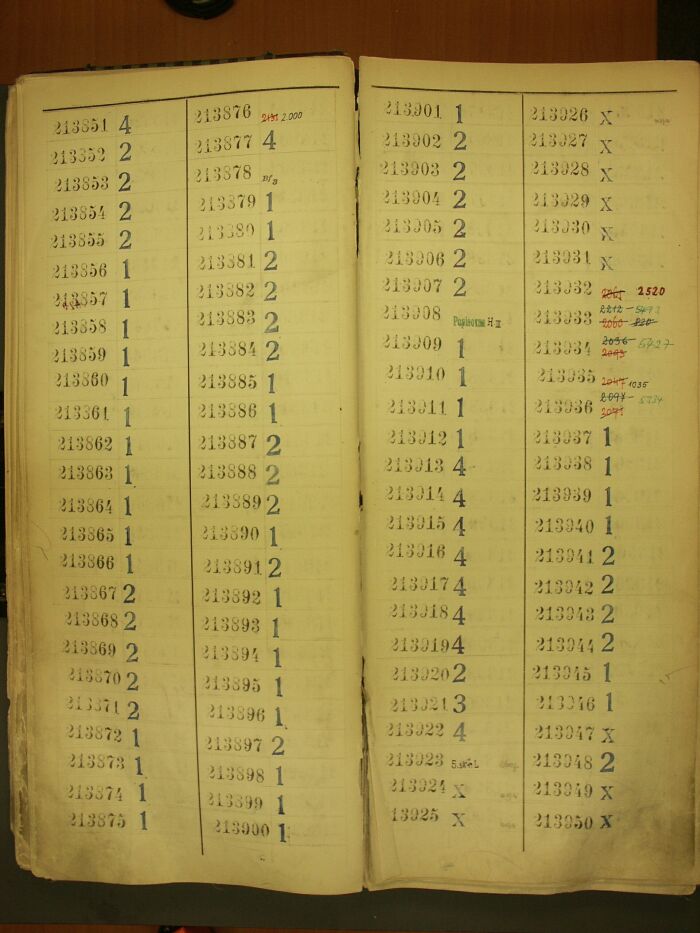 213851 4
213852 2
213853 2
213854 2
213855 2
213856 1
213857 1
213858 1
213859 1
213860 1
213861 1
213862 1
213863 1
213864 1
213865 1
213866 1
213867 2
213868 2
213869 2
213870 2
213871 2
213872 1
213873 1
213874 1
213875 1
213876 2.000
213877 4
213878
213879 1
213880 1
213881 2
213882 2
213883 2
213884 2
213885 1
213886 1
213887 2
213888 2
213889 2
213890 1
213891 2
213892 1
213893 1
213894 1
213895 1
213896 1
213897 2
213898 1
213899 1
213900 1
213901 1
213902 2
213903 2
213904 2
213905 2
213906 2
213907 2
213908
213909 1
213910 1
213911 1
213912 1
213913 4
213914 4
213915 4
213916 4
213917 4
213918 4
213919 4
213920 2
213921 3
213922 4
213923
213924 X
13925 X
213926 X
213927 X
213928 X
213929 X
213930 X
213931 X
213932 2520
213933 2212
2060 820
213934 2036 5727
2093
213935 2047 1035
213936 2097 5734
2071
213937 1
213938 1
213939 1
213940 1
213941 2
213942 2
213943 2
213944 2
213945 1
213946 1
213947 X
213948 2
213949 X
213950 X